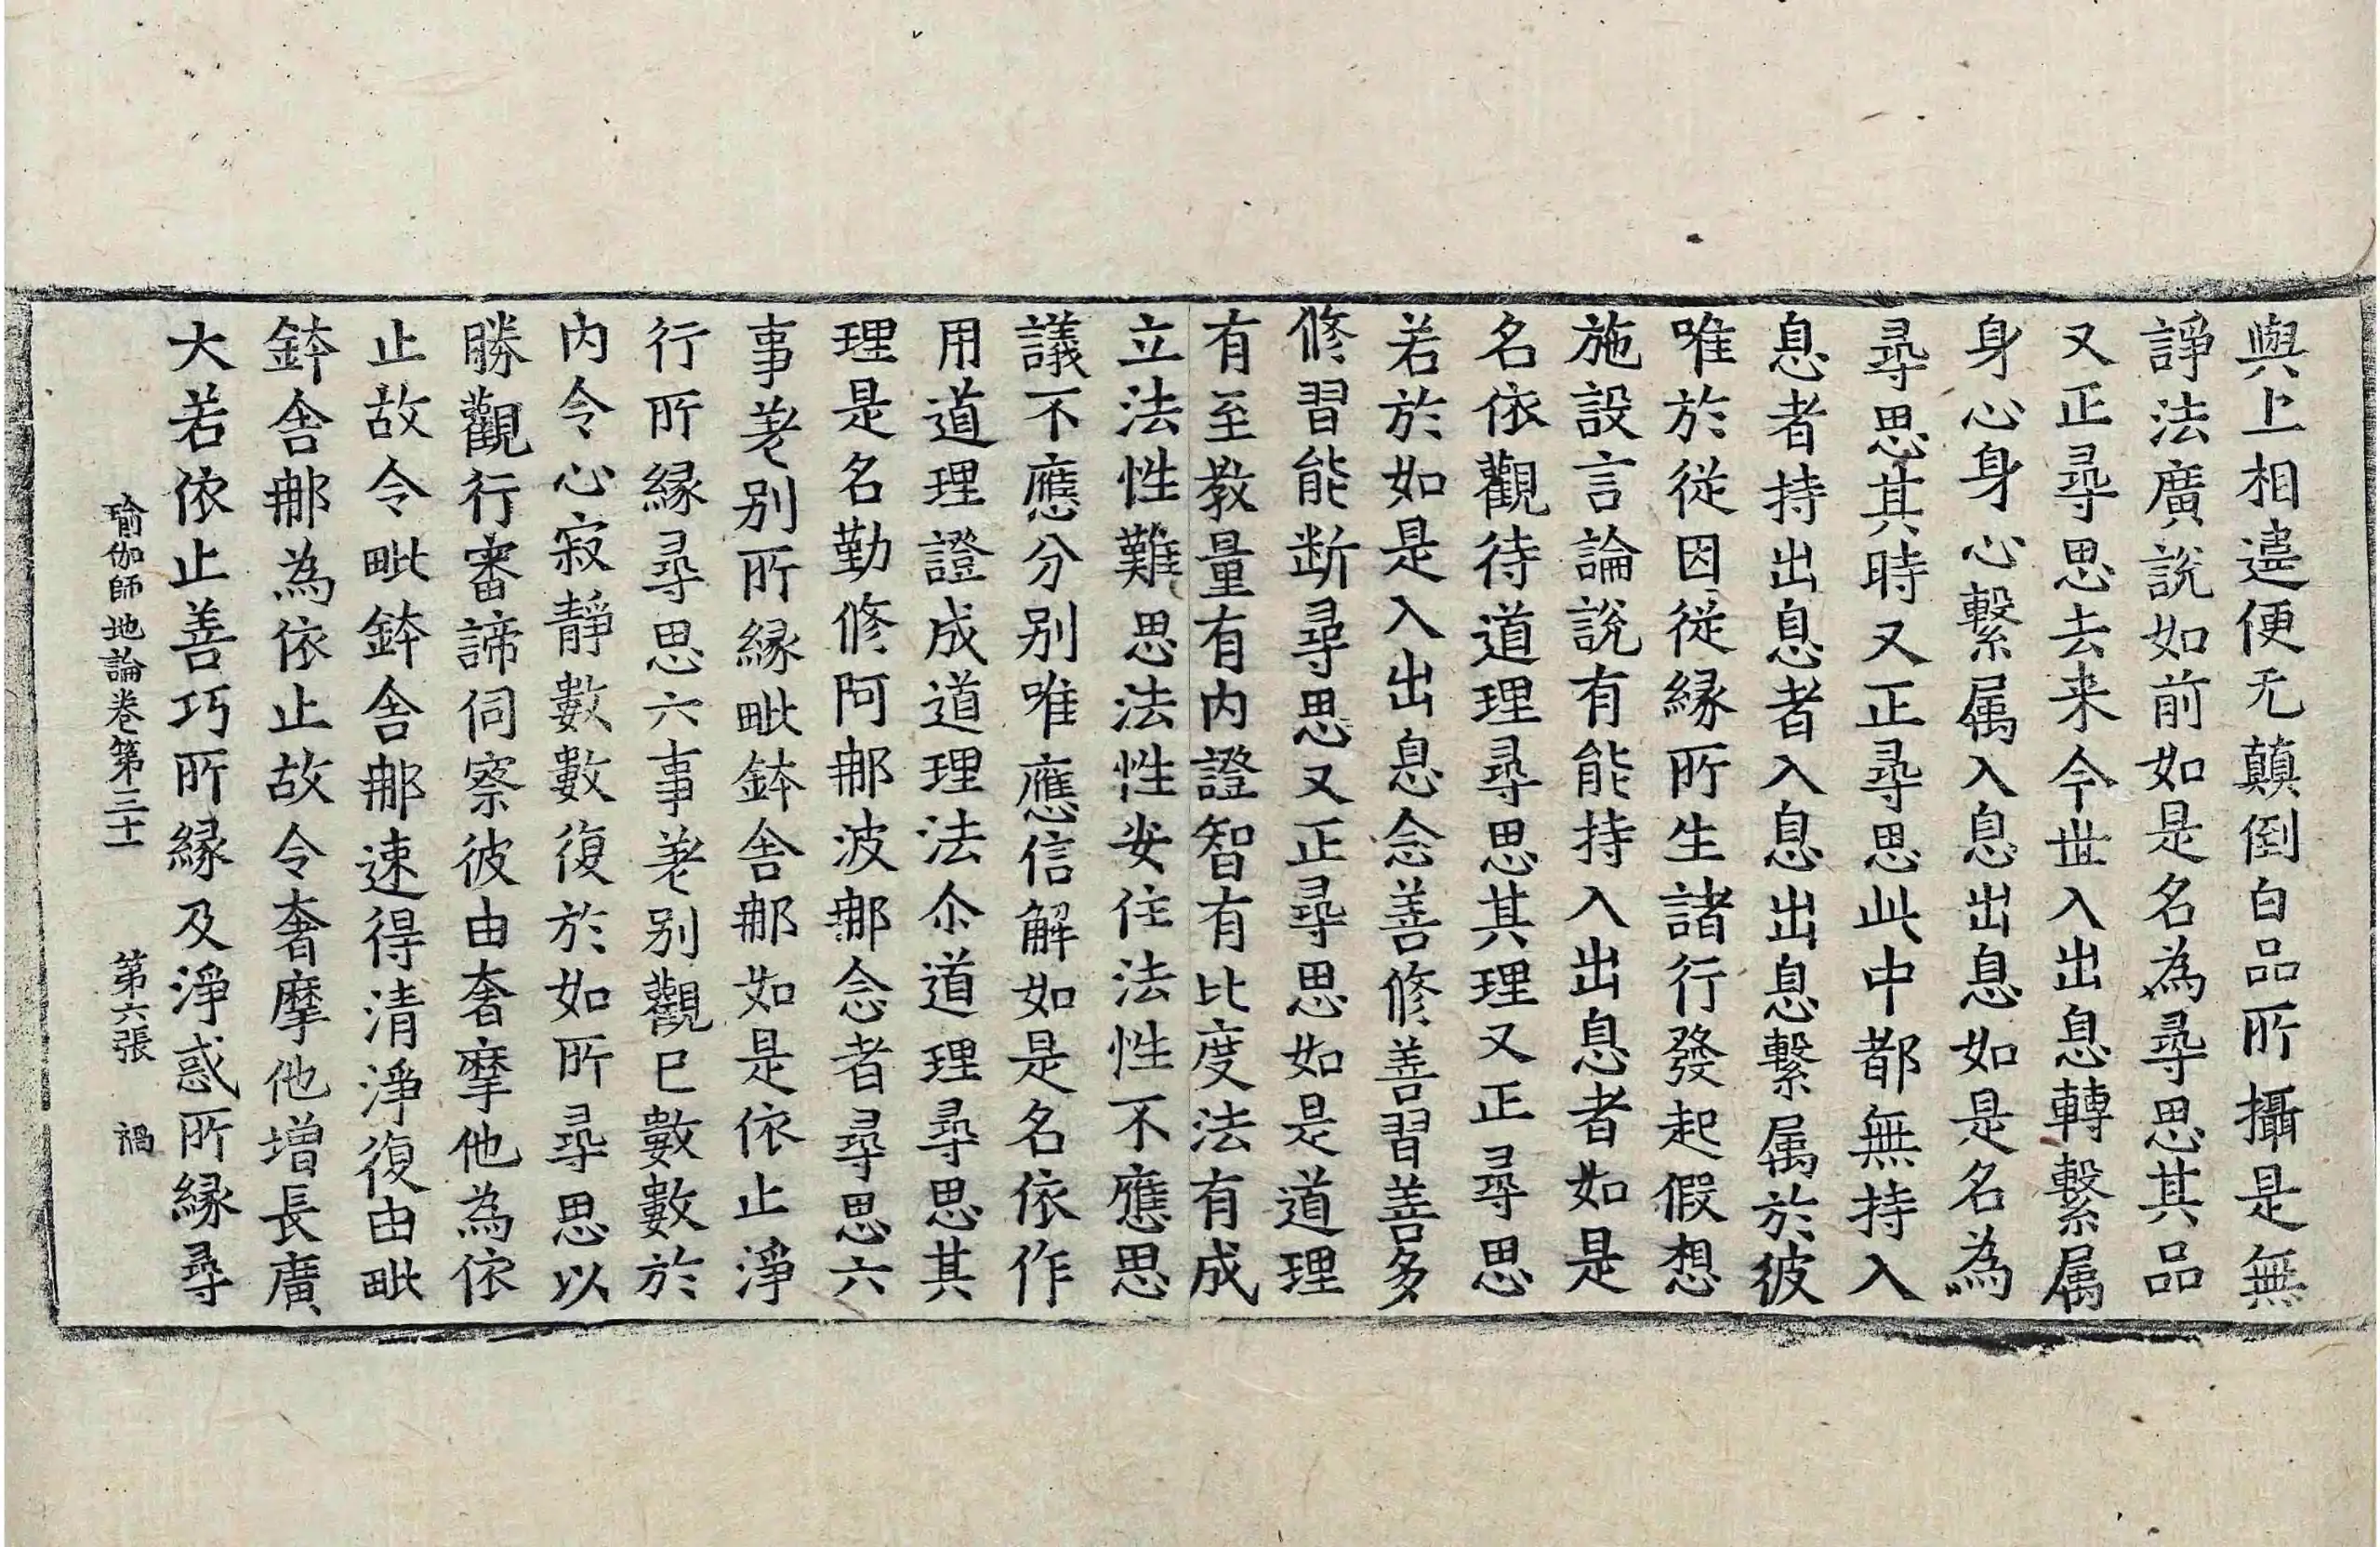 與上相違便无顛倒白品所攝是無
諍法廣說如前如是名為尋思其品
又正尋思去来今世入出息轉繫属
身心身心繫属入息出息如是名為
尋思其時又正尋思此中都無持入
息者持出息者入息出息繫属於彼
唯於從因從緣所生諸行發起假想
施設言論說有能持入出息者如是
名依觀待道理尋思其理又正尋思
若於如是入出息念善修善習善多
修習能断尋思又正尋思如是道理
有至教量有内證智有比度法有成
立法性難思法性安住法性不應思
議不應分别唯應信解如是名依作
用道理證成道理法尒道理尋思其
理是名勤修阿那波那念者尋思六
事差别所緣毗鉢舍那如是依止淨
行所緣尋思六事差别觀已數數於
内令心寂靜數數復於如所尋思以
勝觀行審諦伺察彼由奢摩他為依
止故令毗鉢舍那速得清淨復由毗
鉢舍那為依止故令奢摩他增長廣
大若依止善巧所緣及淨惑所緣尋
瑜伽師地論卷第三十一 第六張 禍